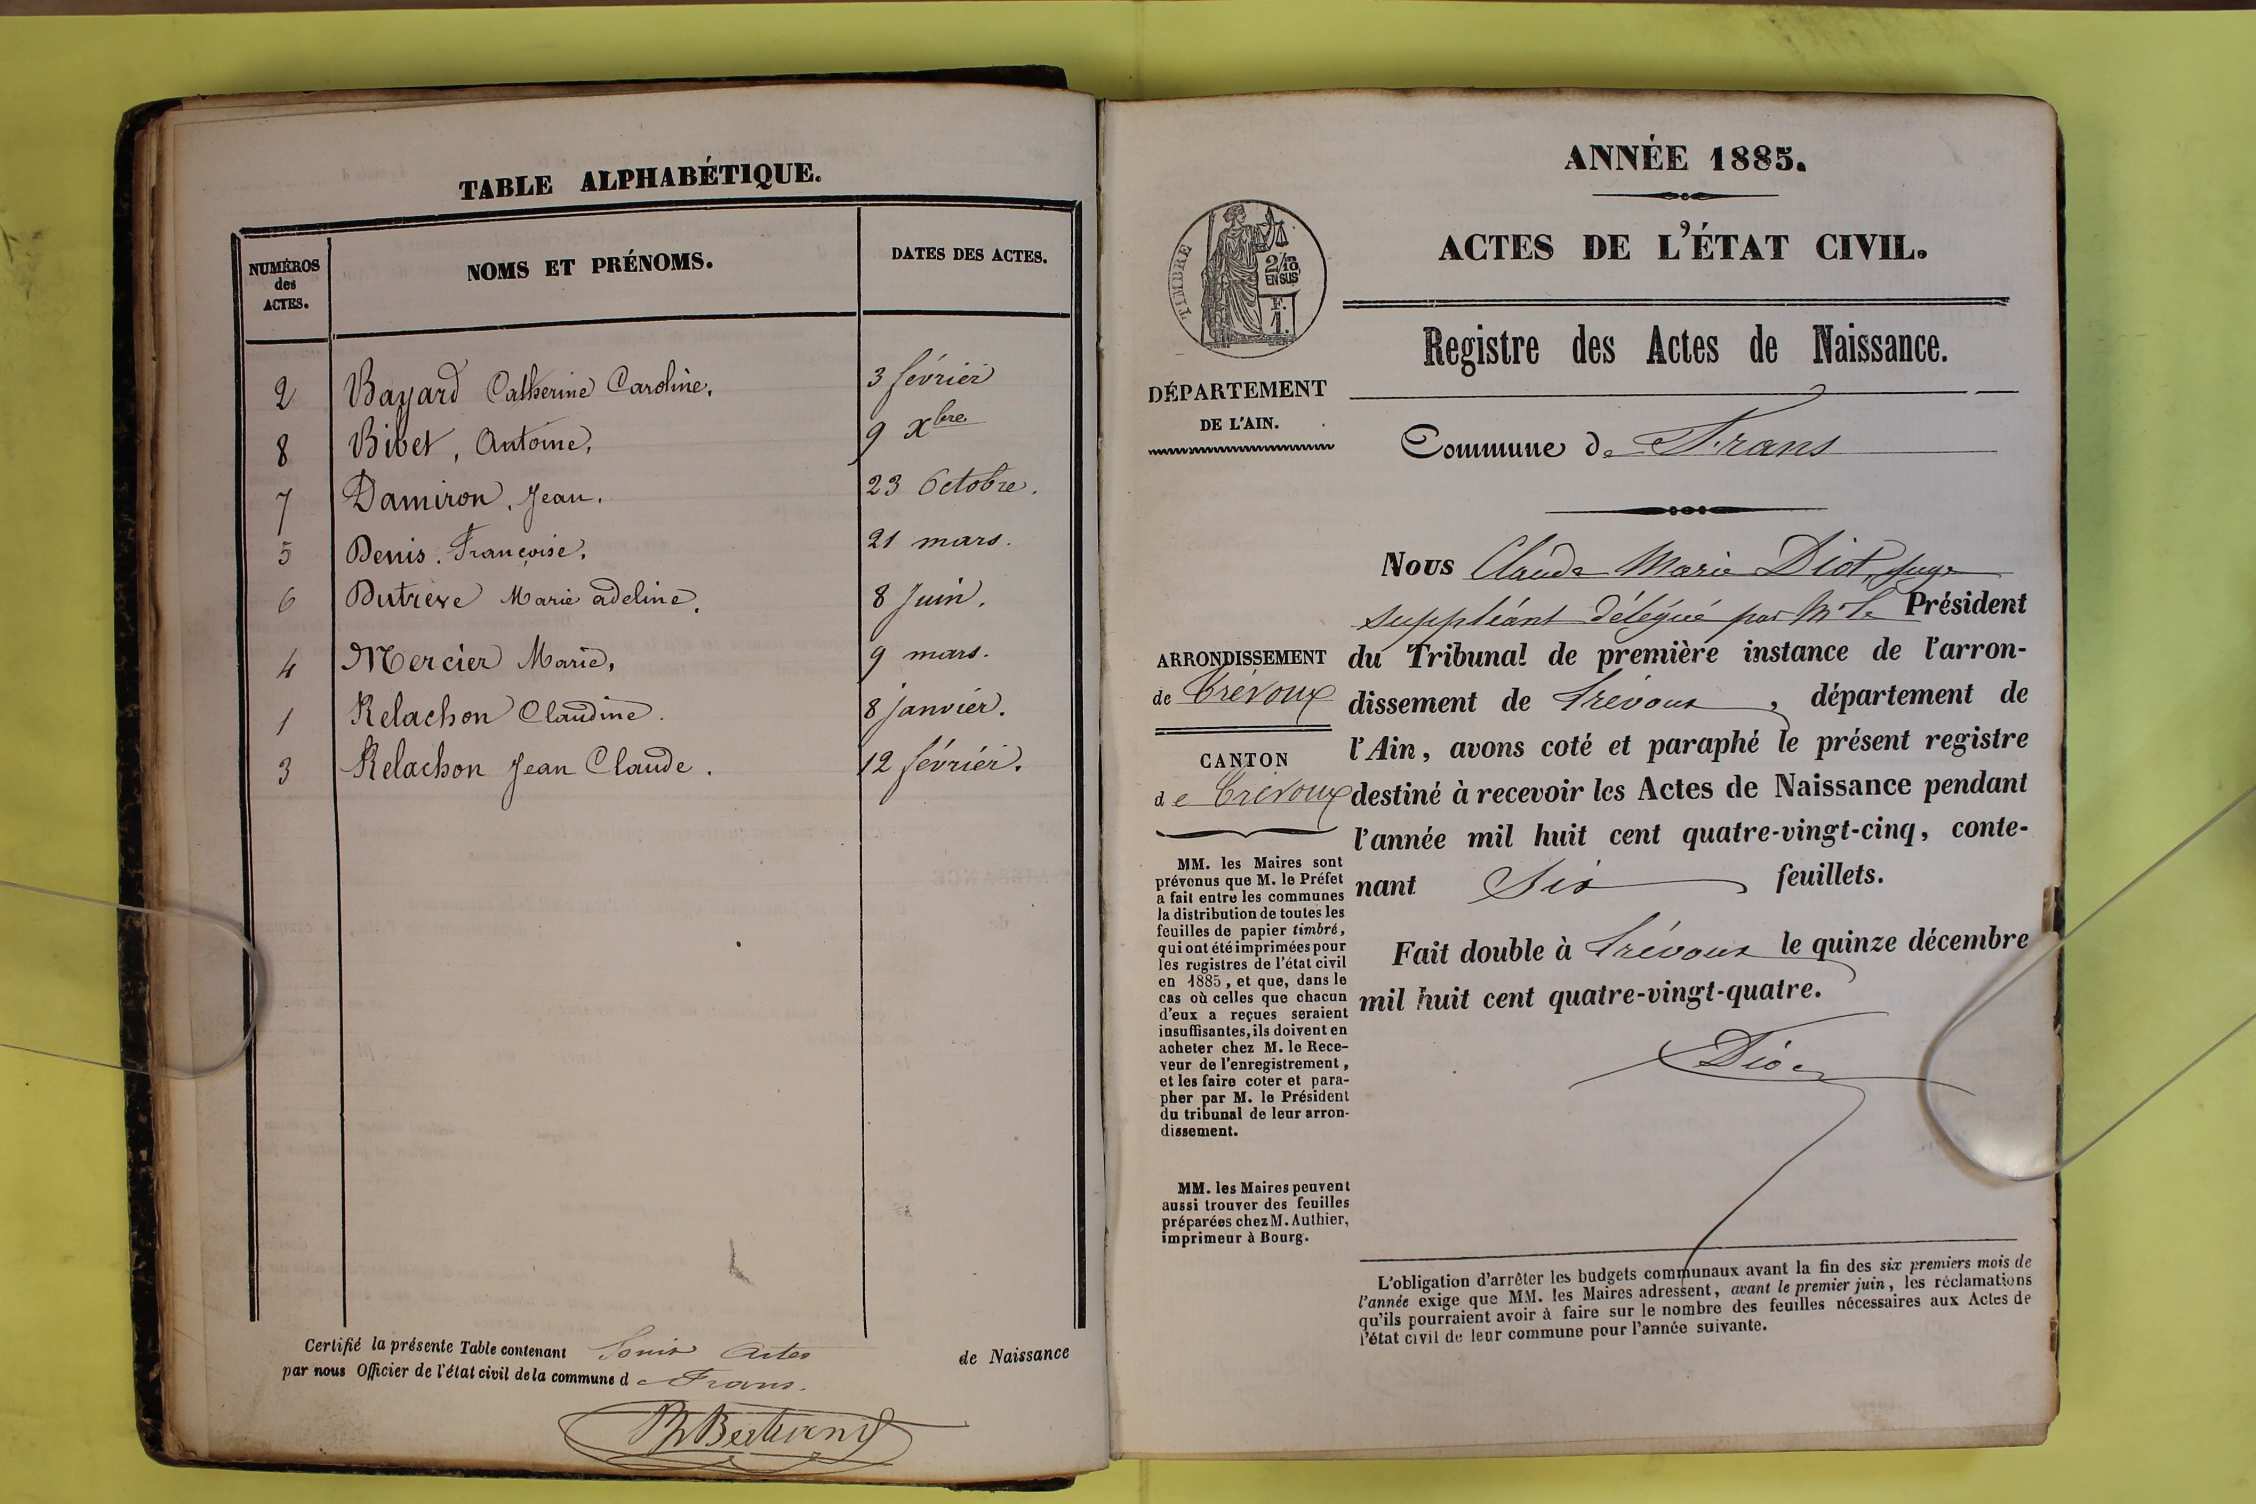 TABLE ALPHABÉTIQUE.
NUMÉROS des ACTES. NOMS ET PRÉNOMS. DATES DES ACTES.
2 Bayard Catherine Caroline. 3 février
8 Bibet, Antoine. 9 Xbre
7 Damiron, Jean. 23 Octobre.
5 Denis. Françoise. 21 mars.
6 Dutrève Marie adeline. 8 Juin.
4 Mercier Marie. 9 mars.
1 Relachon Claudine. 8 janvier.
3 Relachon Jean Claude. 12 février.
Certifié la présente Table contenant Actes de Naissance
par nous Officier de l'état civil de la commune de Frans.
Bertrand
ANNÉE 1885.
ACTES DE L'ÉTAT CIVIL.
TIMBRE
2/10
EN SUS
F.
1.
Registre des Actes de Naissance.
DÉPARTEMENT
DE L'AIN.
Commune de Frans
Nous Claude Marie Diot, juge
suppléant délégué par Mr le Président
du Tribunal de première instance de l'arron-
dissement de Trévoux, département de
l'Ain, avons coté et paraphé le présent registre
destiné à recevoir les Actes de Naissance pendant
l'année mil huit cent quatre-vingt-cinq, conte-
nant Six feuillets.
Fait double à Trévoux le quinze décembre
mil huit cent quatre-vingt-quatre.
Diot
ARRONDISSEMENT
de Trévoux
CANTON
de Trévoux
MM. les Maires sont
prévenus que M. le Préfet
a fait entre les communes
la distribution de toutes les
feuilles de papier timbré,
qui ont été imprimées pour
les registres de l'état civil
en 1885, et que, dans le
cas où celles que chacun
d'eux a reçues seraient
insuffisantes, ils doivent en
acheter chez M. le Rece-
veur de l'enregistrement,
et les faire coter et para-
pher par M. le Président
du tribunal de leur arron-
dissement.
MM. les Maires peuvent
aussi trouver des feuilles
préparées chez M. Authier,
imprimeur à Bourg.
L'obligation d'arrêter les budgets communaux avant la fin des six premiers mois de
l'année exige que MM. les Maires adressent, avant le premier juin, les réclamations
qu'ils pourraient avoir à faire sur le nombre des feuilles nécessaires aux Actes de
l'état civil de leur commune pour l'année suivante.